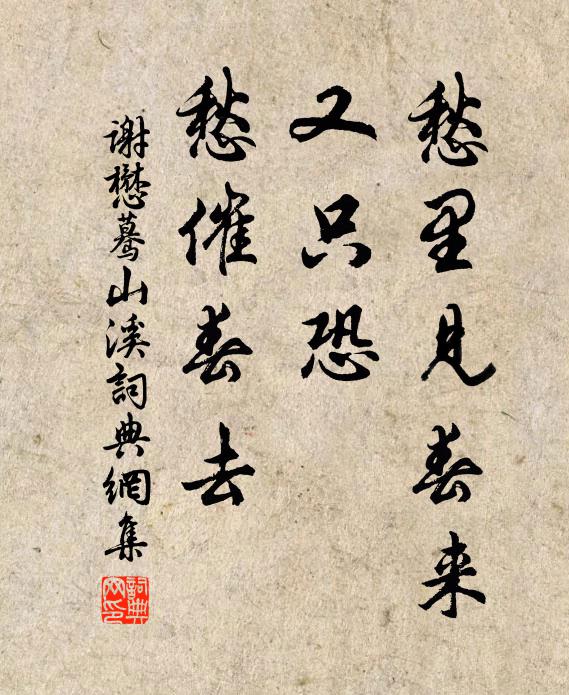 愁里見春来
又只恐
愁催春去
謝懋驀山溪詞典網集
詞典网印